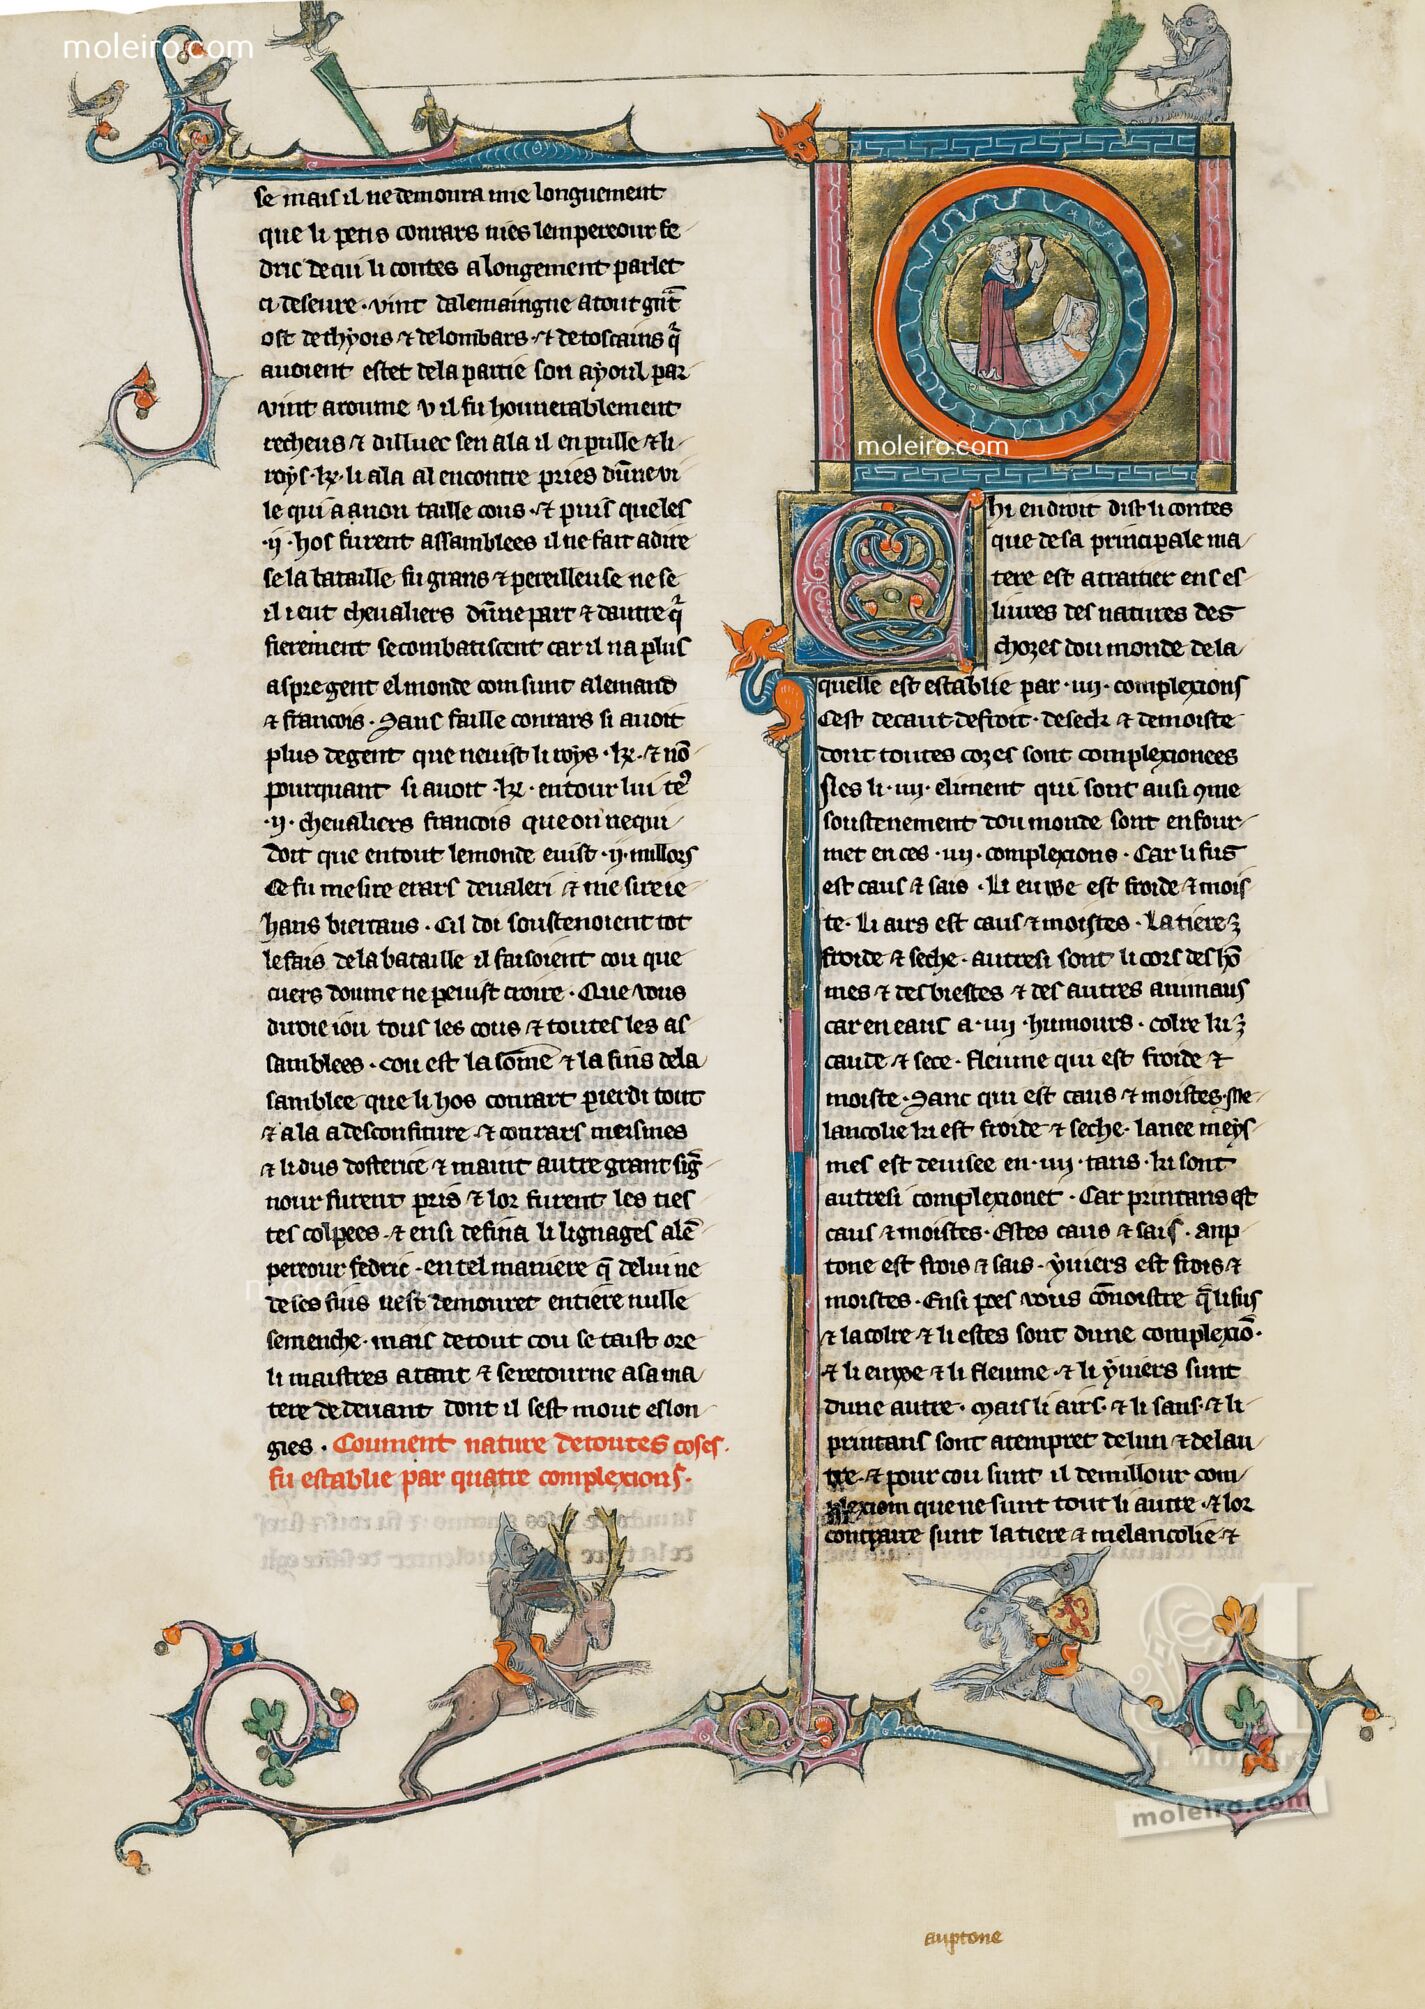 moleiro.com
se mais il ne demoura mie longuement
que li petis conrars nies lempereour fe
dric de qui li contes a longement parlet
ci deseure · vint dalemaingne a tout grāt
ost de thyois ⁊ de lombars · ⁊ de toscains q̄
auoient estet de la partie son ayoul par
vint a roume v il fu hounerablement
recheus ⁊ dilluec sen ala il en puille ⁊ li
roys · kͬ · li ala al encontre pries dūne vi
le qui a a non taille cous · ⁊ puis que les
·ij· hos furent assamblees il ne fait a dire
se la bataille fu grans ⁊ pereilleuse ne se
il i eut cheualiers dūne part ⁊ dautre q̄
fierement se combatiscent car il na plus
aspre gent el monde com sunt alemand
⁊ francois · Sans faille conrars si auoit
plus de gent que neuist li roys · kͬ · ⁊ nō
pourquant si auoit · kͬ · entour lui teˀ
·ij· cheualiers francois que on ne qui
doit que en tout le monde euist ·ij· millors
Ce fu me sire erars de ualeri ⁊ me sire ie
hans biertaus · Cil doi soustenoient tot
le fais de la bataille il faisoient cou que
cuers doume ne peuist croire · Que vous
diroie iou tous les cous ⁊ toutes les as
samblees · cou est la some ⁊ la fins de la
samblee que li hos conrart pierdi tout
⁊ ala a desconfiture ⁊ conrars meismes
⁊ li dus dosterice ⁊ maint autre grant siḡ
nour furent pris ⁊ lor furent les ties
tes colpees · ⁊ ensi defina li lignages alē
pereour fedric · en tel maniere q̄ de lui ne
de ses fius nest demouret entiere nulle
semenche · mais de tout cou se taist ore
li maistres atant ⁊ se retourne a sa ma
tere de deuant dont il sest mout eslon
gies · Coument nature de toutes coses ·
fu establie par quatre complexions ·
moleiro.com
Chi endroit dist li contes
que de sa principale ma
tere est a traitier en ses
liures des natures des
chozes dou monde de la
quelle est establie par ·iiij· complexions
Cest de caut de froit · de seck ⁊ de moiste
dont toutes cozes sont complexionees
Nes li ·iiij· eliment qui sont ausi 9me
soustenement dou monde sont enfour
met en ces ·iiij· complexions · Car li fus
est caus ⁊ sais · Li euwe est froide ⁊ mois
te · Li airs est caus ⁊ moistes · La tiere ꝫ
froide ⁊ seche · autresi sont li cors des hō
mes ⁊ des biestes ⁊ des autres animaus
car en eaus a ·iiij· humours · colre ki ꝫ
caude ⁊ sece · fleume qui est froide ⁊
moiste · Sanc qui est caus ⁊ moistes · me
lancolie ki est froide ⁊ seche · lanee meys
mes est deuisee en ·iiij· tans · ki sont
autresi complexionet · Car printans est
caus ⁊ moistes · Estes caus ⁊ sais · aup
tone est frois ⁊ sais · yuiers est frois ⁊
moistes · Ensi poes vous cōnoistre q̄ li fus
⁊ la colre ⁊ li estes sont dune complexiō ·
⁊ li euwe ⁊ li fleume · ⁊ li yuiers sunt
dune autre · mais li airs · ⁊ li sans · ⁊ li
printans sont atempret de lun ⁊ de lau
tre · ⁊ pour cou sunt il de millour com
plexiom que ne sunt tout li autre · ⁊ lor
contraire sunt la tiere ⁊ melancolie ⁊
M. Moleiro
moleiro.com
auptone